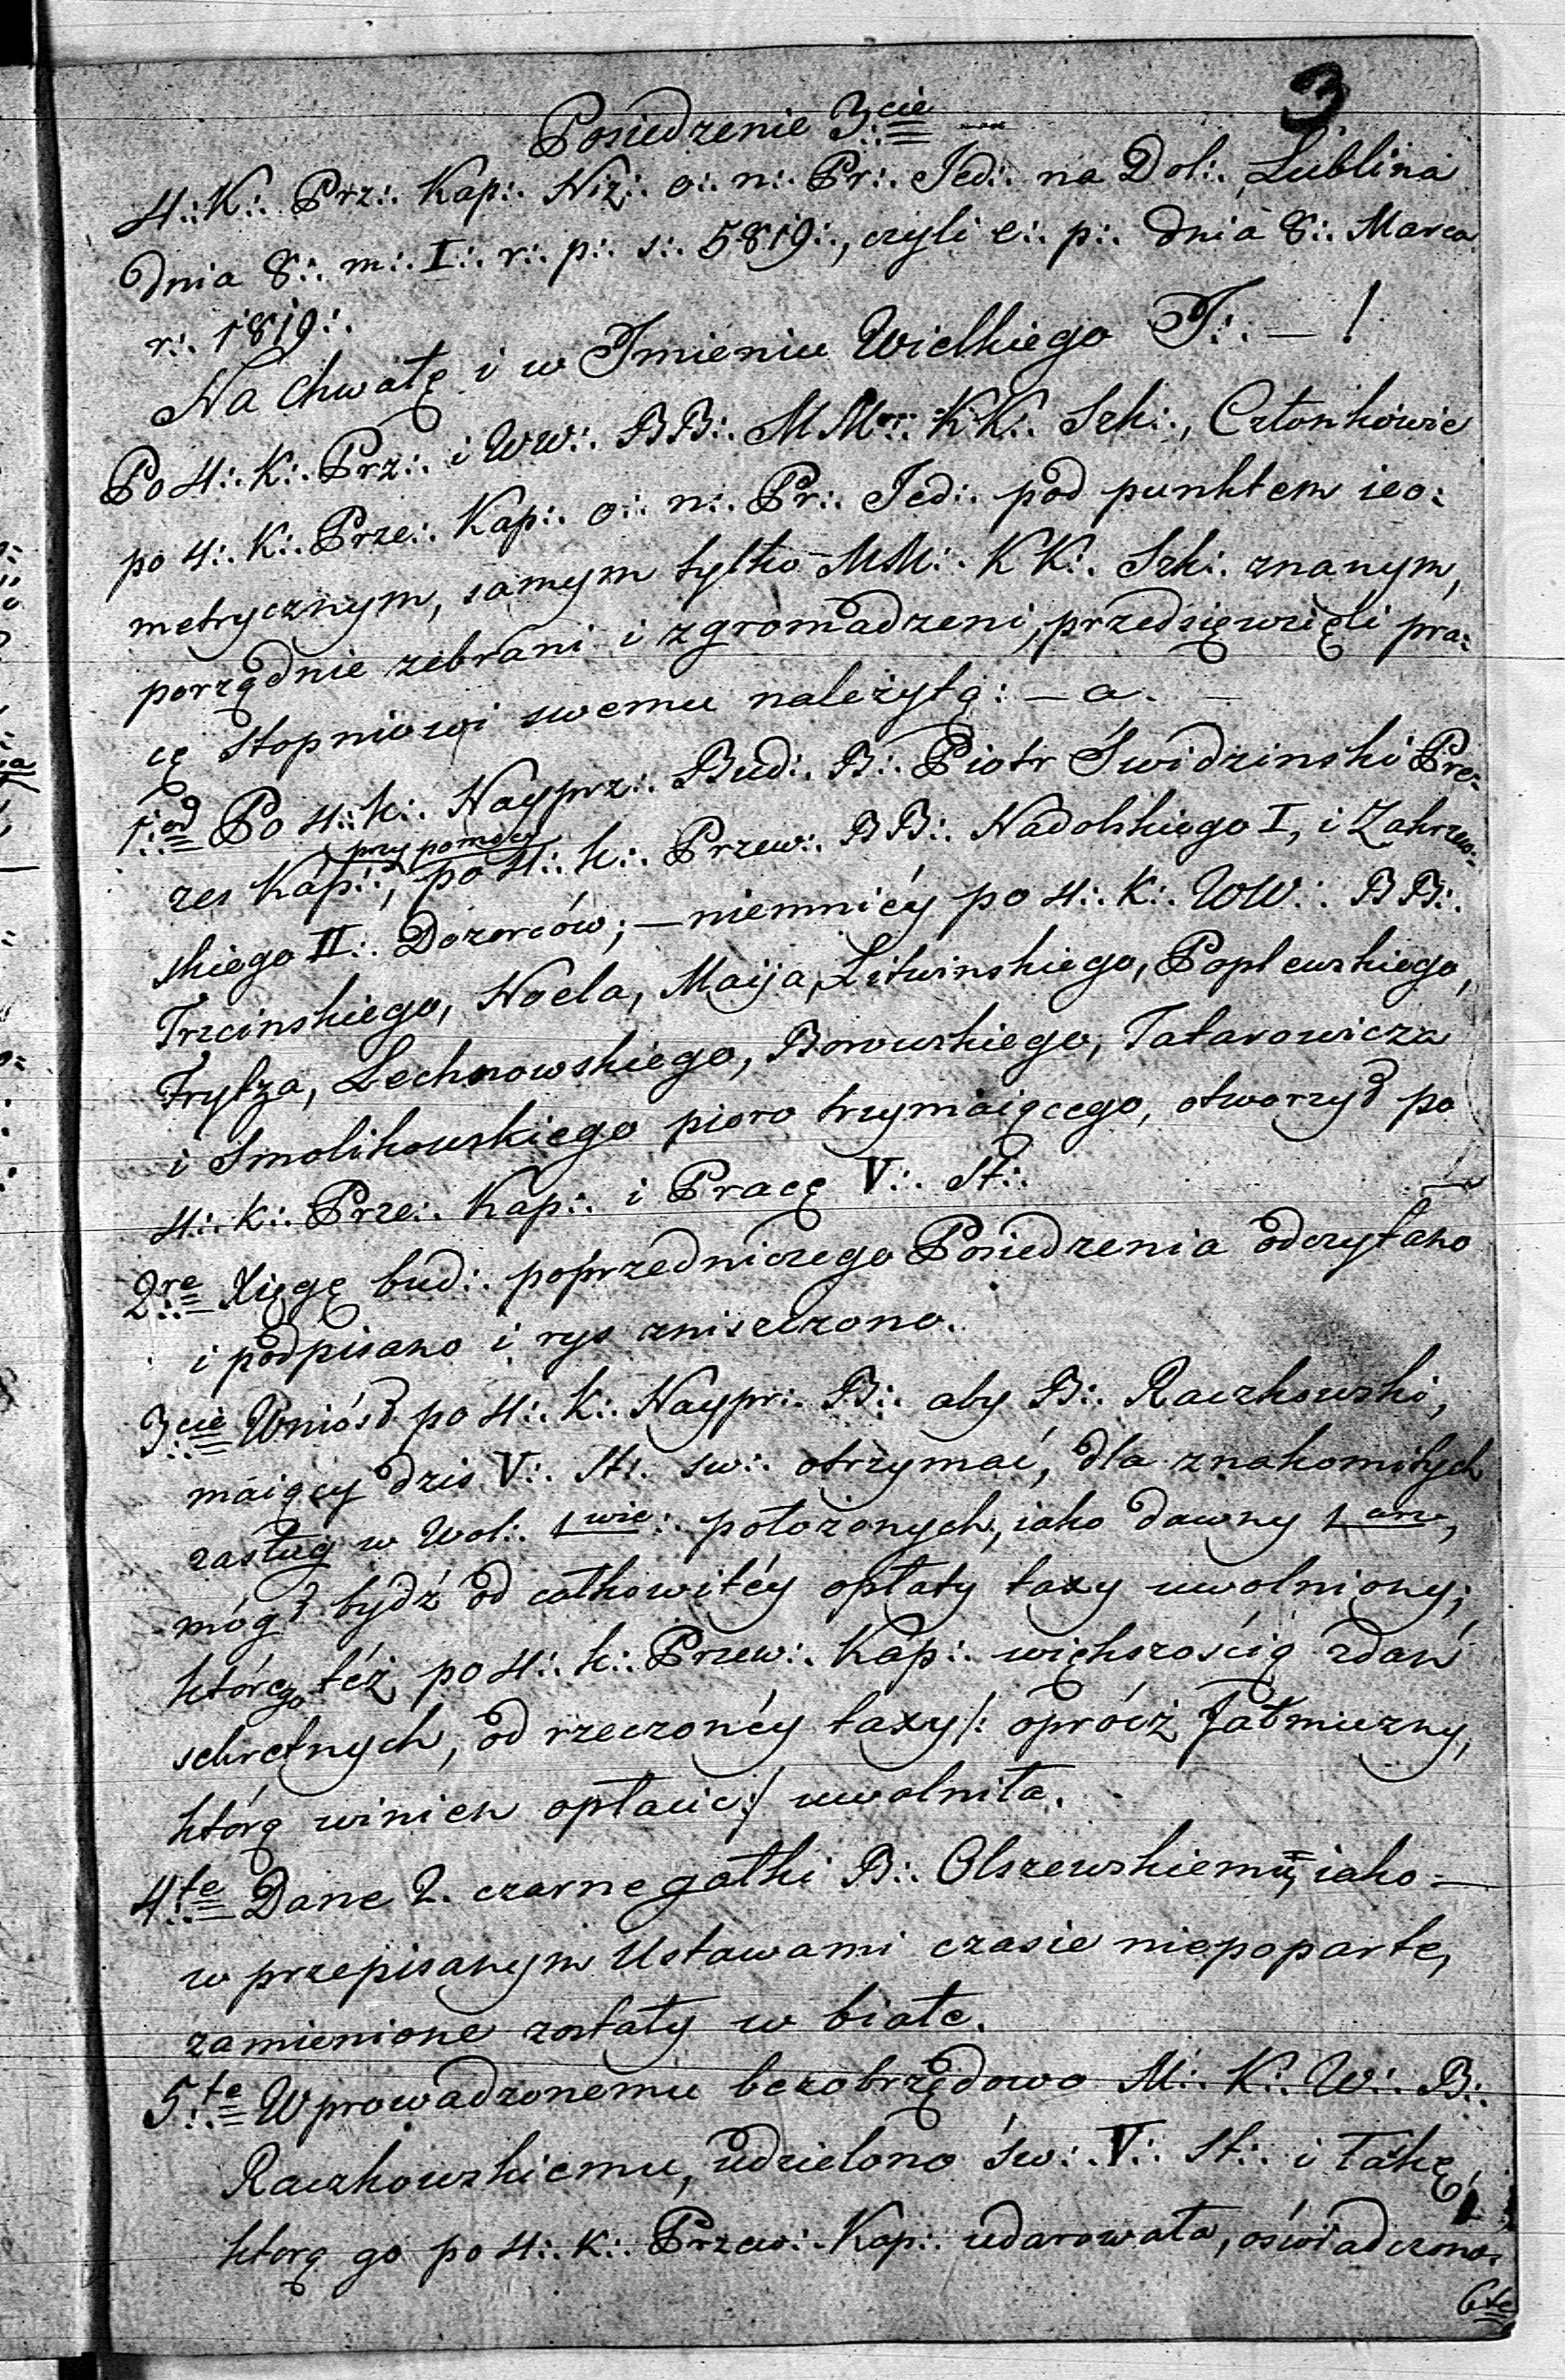 3
Posiedzenie 3:cie
4:.K:. Prz:. Kap:. Niż:. o:. n:. Pr:. Jed:. na Dol:. Lublina
dnia 8:. m:. I:. r:. p:. s:. 5819:., czyli e:. p:. dnia 8:. Marca
r:. 1819:.
Na chwałę i w Imieniu Wielkiego J:. — !
Po 4:. K:. Prz:. i WW:. BB:. MM:. KK:. Szk:., Członkowie
po 4:. K:. Prze:. Kap:. o:. n:. Pr:. Jed:. pod punktem ieo:
metrycznym, samym tylko MM:. KK:. Szk:. znanym,
porządnie zebrani i zgromadzeni, przedsięwzięli pra:
cę stopniowi swemu należytą: — a. —
1:od Po 4:. k:. Nayprz:. Bud:. B:. Piotr Swidzinski Pre:
zes Kap:., przy pomocy po 4:. k:. Przew:. BB:. Nadolskiego I, i Zakrzew:
skiego II:. Dozorców; — niemniéy po 4:. K:. WW:. BB:.
Trzcinskiego, Noela, Maija, Litwinskiego, Poplewskiego,
Frytza, Lechnowskiego, Borowskiego, Tatarowicza
i Smolikowskiego pioro trzymaiącego, otworzył po
4:. k:. Prze:. Kap:. i Pracę V:. St:.
2:re Xięgę bud:. poprzedniczego Posiedzenia odczytano
i podpisano i rys zniszczono.
3:cie Wniósł po 4:. K:. Naypr:. B:. aby B:. Raczkowski,
maiący dziś V:. St:. św:. otrzymać, dla znakomitych
zasług w Wol:. 1wie:. położonych, iako dawny 1arz,
mógł bydź od całkowitéy opłaty taxy uwolniony;
którego też po 4:. k:. Przew:. Kap:. większością zdań
sekretnych, od rzeczonéy taxy /: oprócz Jałmużny,
którą winien opłacić :/ uwolniła.
4:te Dane 2. czarne gałki B:. Olszewskiemu, iako —
w przepisanym Ustawami czasie niepoparte,
zamienione zostały w białe.
5:te Wprowadzonemu bezobrzędowo M:. K:. W:. B:.
Raczkowskiemu, udzielono św:. V:. St:. i łaskę,
którą go po 4:. k:. Przew:. Kap:. udarowała, oświadczono.
6te